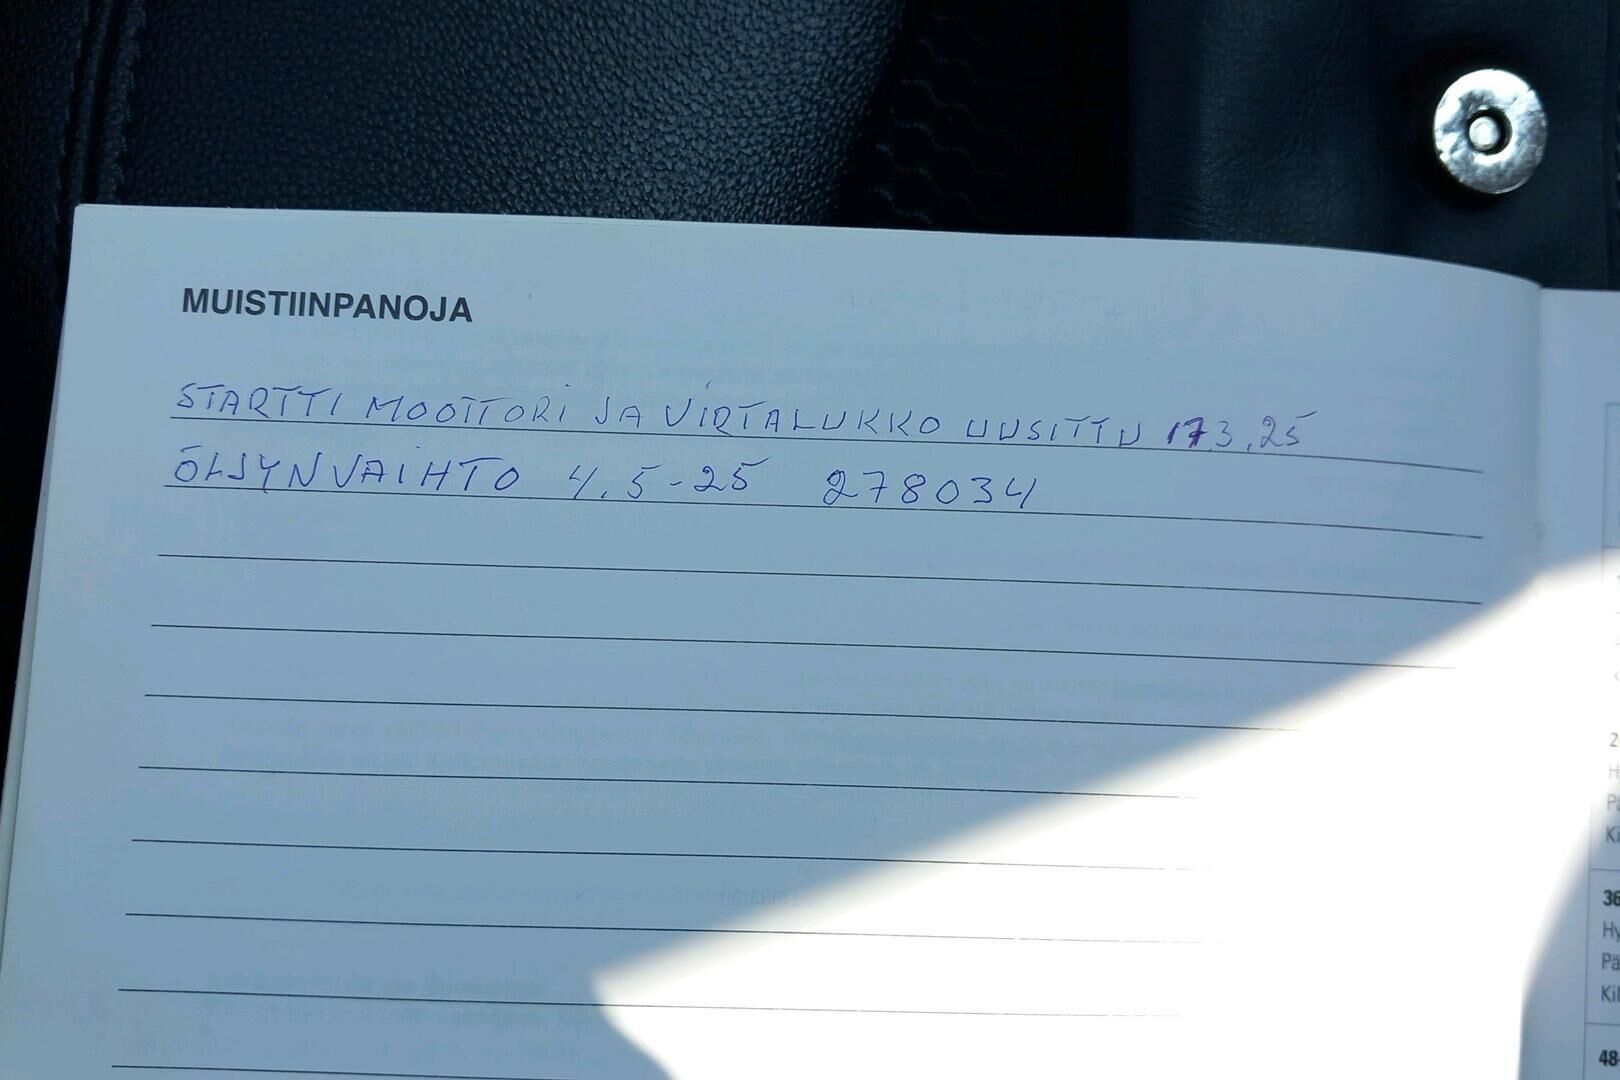 MUISTIINPANOJA
STARTTI MOOTTORI JA VIRTALUKKO UUSITTU 17.3.25
ÖLJYNVAIHTO 4.5-25 278034
2
H
Pä
Ki
36
Hy
Pä
Kil
48-